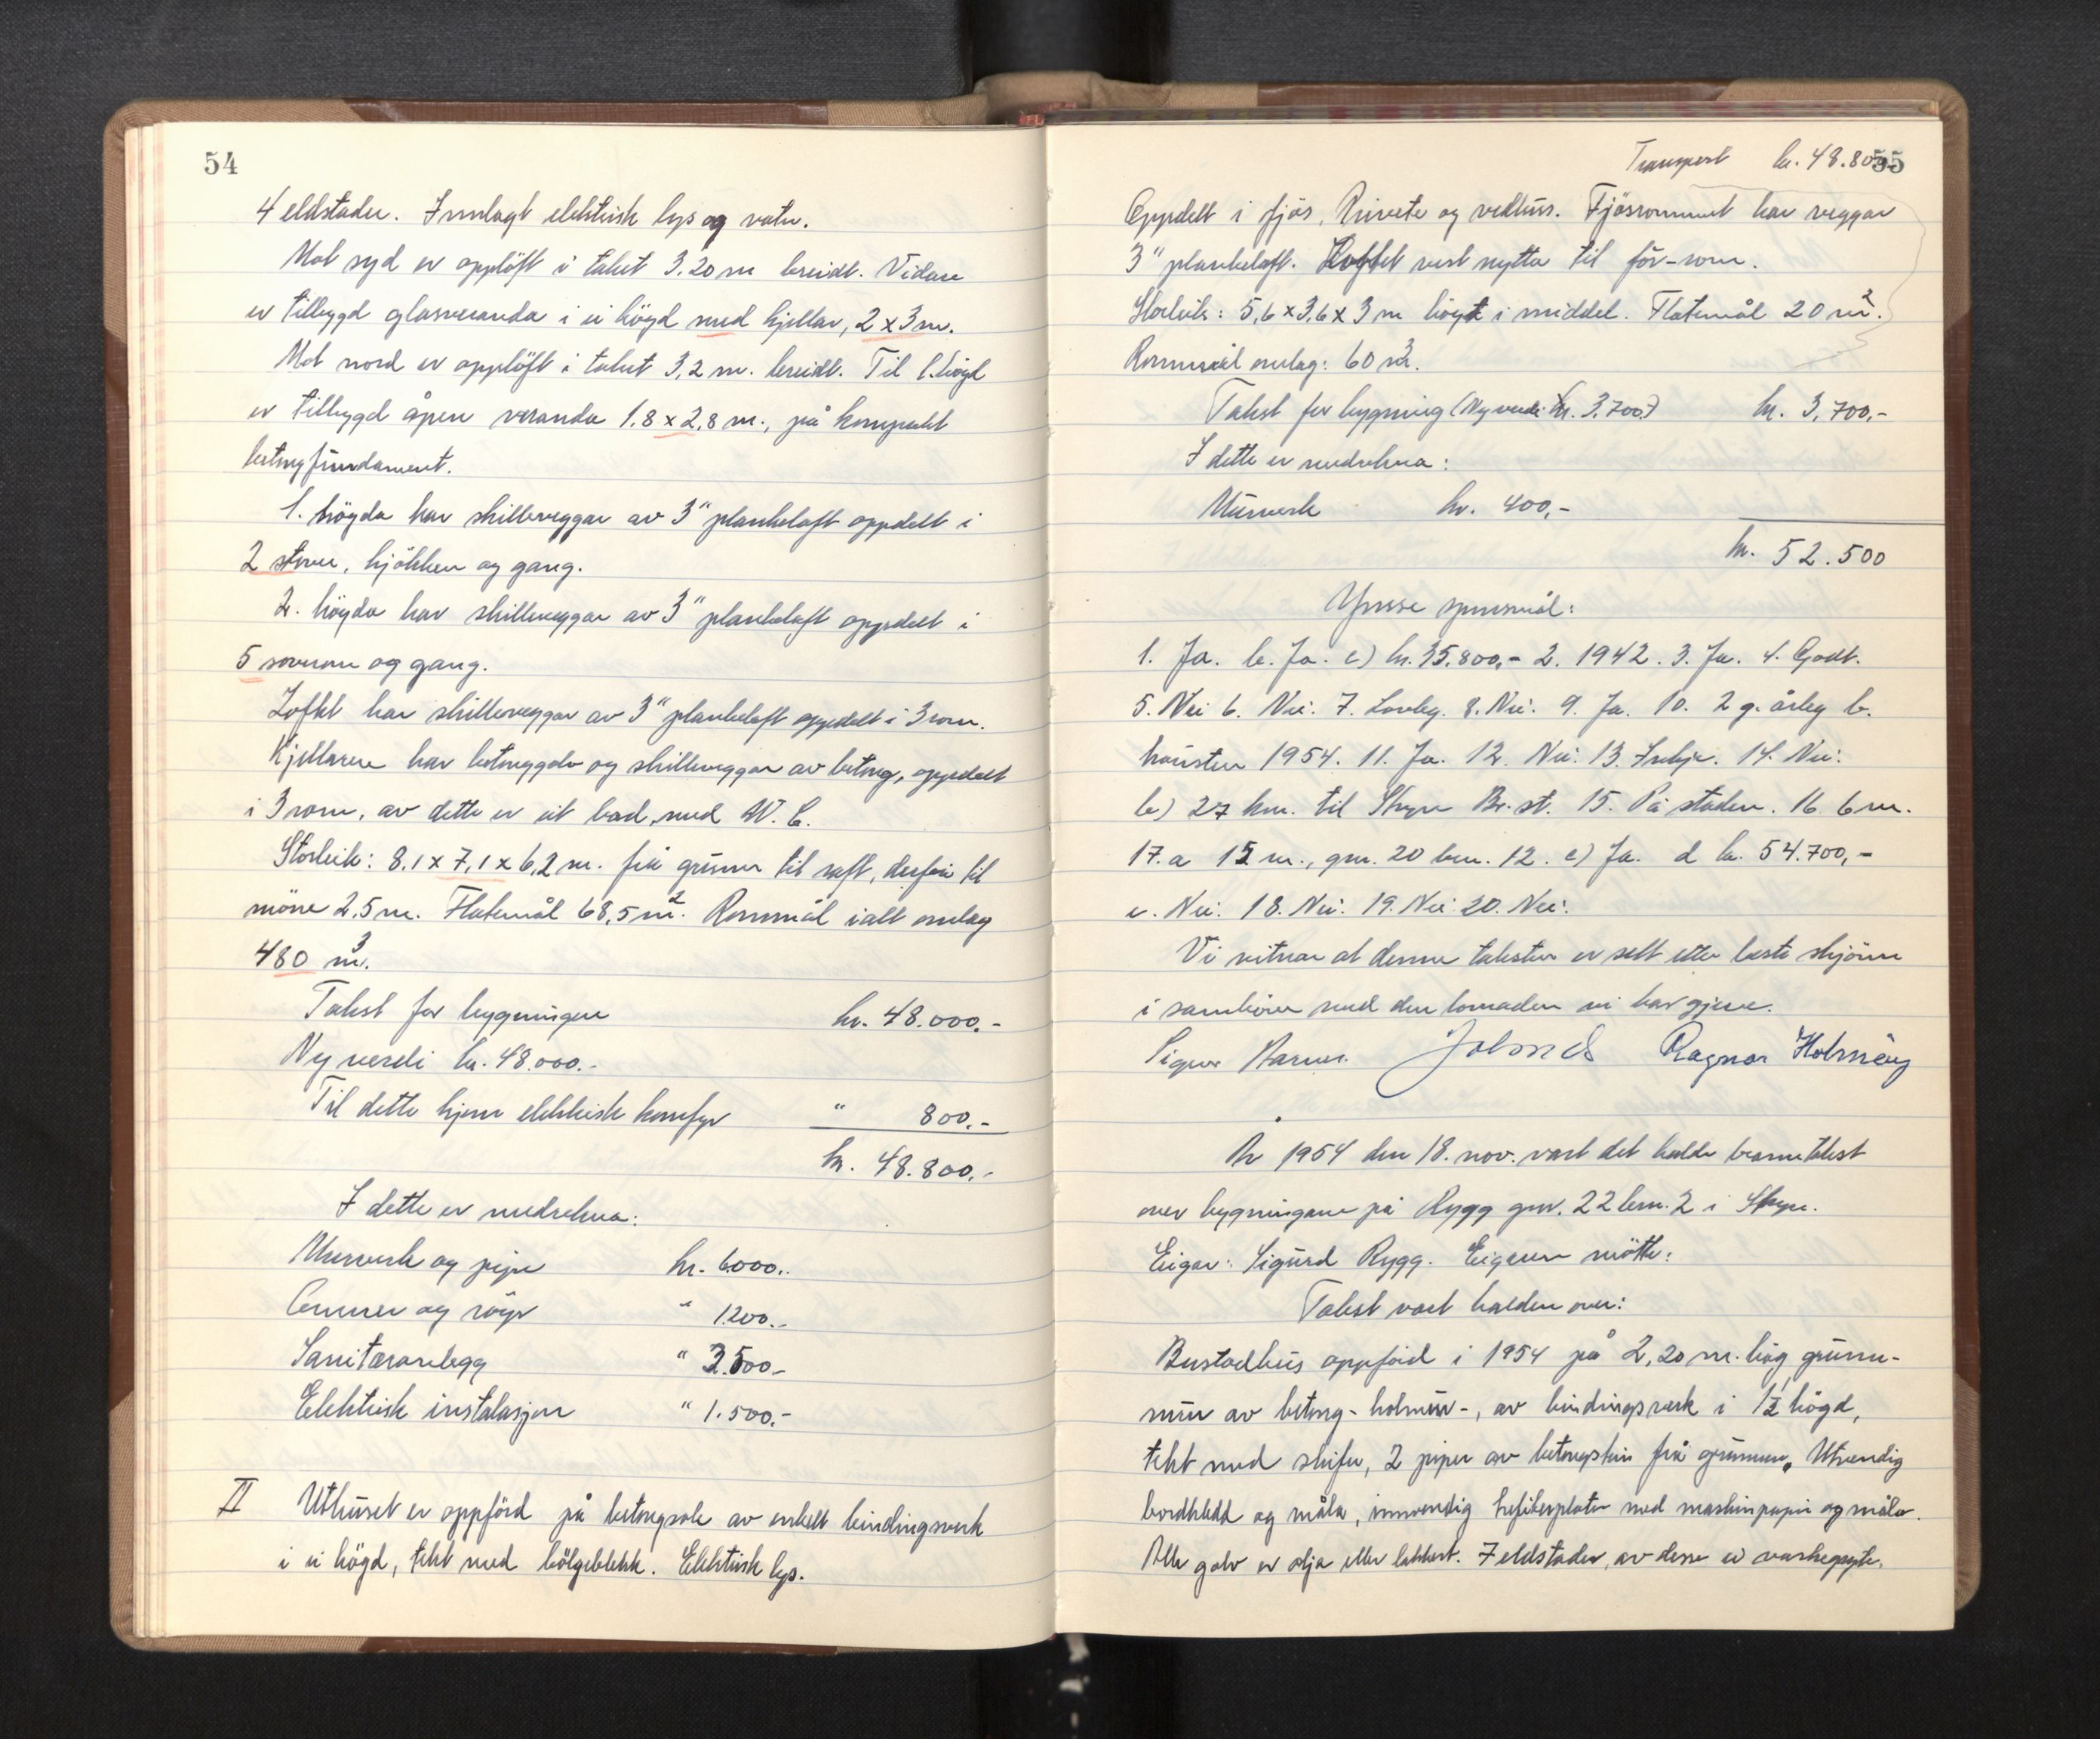 54
4 eldstader. Innlagt elektrisk lys og vatn.
Mot syd er oppløft i taket 3.20 m breidt. Vidare
er tilbygd glasveranda i ei högd med kjellar, 2 x 3 m.
Mot nord er oppløft i taket 3,2 m. breidt. Til 1. högd
er tilbygd åpen veranda 1.8 x 2.8 m., på kompakt
betongfundament.
1. högda har skilleveggar av 3" plankelaft oppdelt i
2 stover, kjökken og gang.
2. högda har skilleveggar av 3" plankelaft oppdelt i
5 soverom og gang.
Loftet har skilleveggar av 3" plankelaft oppdelt i 3 rom.
Kjellaren har betonggolv og skilleveggar av betong, oppdelt
i 3 rom, av dette er eit bad med W.C.
Storleik: 8,1 x 7,1 x 6,2 m. frå grunn til raft, derfrå til
möne 2.5 m. Flatemål 68,5 m². Rommål ialt omlag
480 m³.
Takst for bygningen kr. 48.000.-
Ny verdi kr. 48.000.-
Til dette kjem elektrisk komfyr " 800.-
kr. 48.800.-
I dette er medrekna:
Murverk og pipe kr. 6000.-
Omner og röyr " 1200.-
Sanitæranlegg " 3.500.-
Elektrisk instalasjon " 1.500.-
II Uthuset er oppförd på betongsole av enkelt bindingsverk
i ei högd, tekt med bölgeblekk. Elektrisk lys.
55
Transport kr. 48.800
Oppdelt i fjös, Privete og vedhus. Fjösrommet har veggar
3" plankelaft. Loftet vert nytta til fôr-rom.
Storleik: 5,6 x 3,6 x 3 m högt i middel. Flatemål 20 m².
Rommål omlag: 60 m³.
Takst for bygning (Ny verdi kr. 3.700.) kr. 3,700,-
I dette er medrekna:
Murverk kr. 400,-
kr. 52.500
Ymse spursmål:
1. Ja. b. Ja. c) kr. 35.800,- 2. 1942. 3. Ja. 4. Godt.
5. Nei 6. Nei. 7. Loveleg. 8. Nei. 9. Ja. 10. 2 g. årleg b.
hausten 1954. 11. Ja. 12. Nei. 13. 14. Nei.
b) 27 km. til Stryn Br. st. 15. På staden. 16. 6 m.
17. a 15 m., gnr. 20 bnr. 12. c) Ja. d kr. 54.700,-
e. Nei. 18. Nei. 19. Nei 20. Nei.
Vi vitnar at denne taksten er sett etter beste skjönn
i samhöve med den lovnaden vi har gjeve.
Ragnar
År 1954 den 18. nov. vart det halde branntakst
over bygningane på Rygg gnr. 22 bnr. 2 i Stryn.
Eigar: Sigurd Rygg. Eigaren mötte:
Takst vart halden over:
Bustadhus oppförd i 1954 på 2,20 m. høg grunn-
mur av betong- holmur-, av bindingsverk i 1½ högd,
tekt med skifer, 2 piper av betongstein frå grunnen. Utvendig
bordkledd og måla, innvendig trefiberplater med maskinpapir og måla.
Alle golv er olja eller lakkert. 7 eldstader, av desse ei vaskegryte.